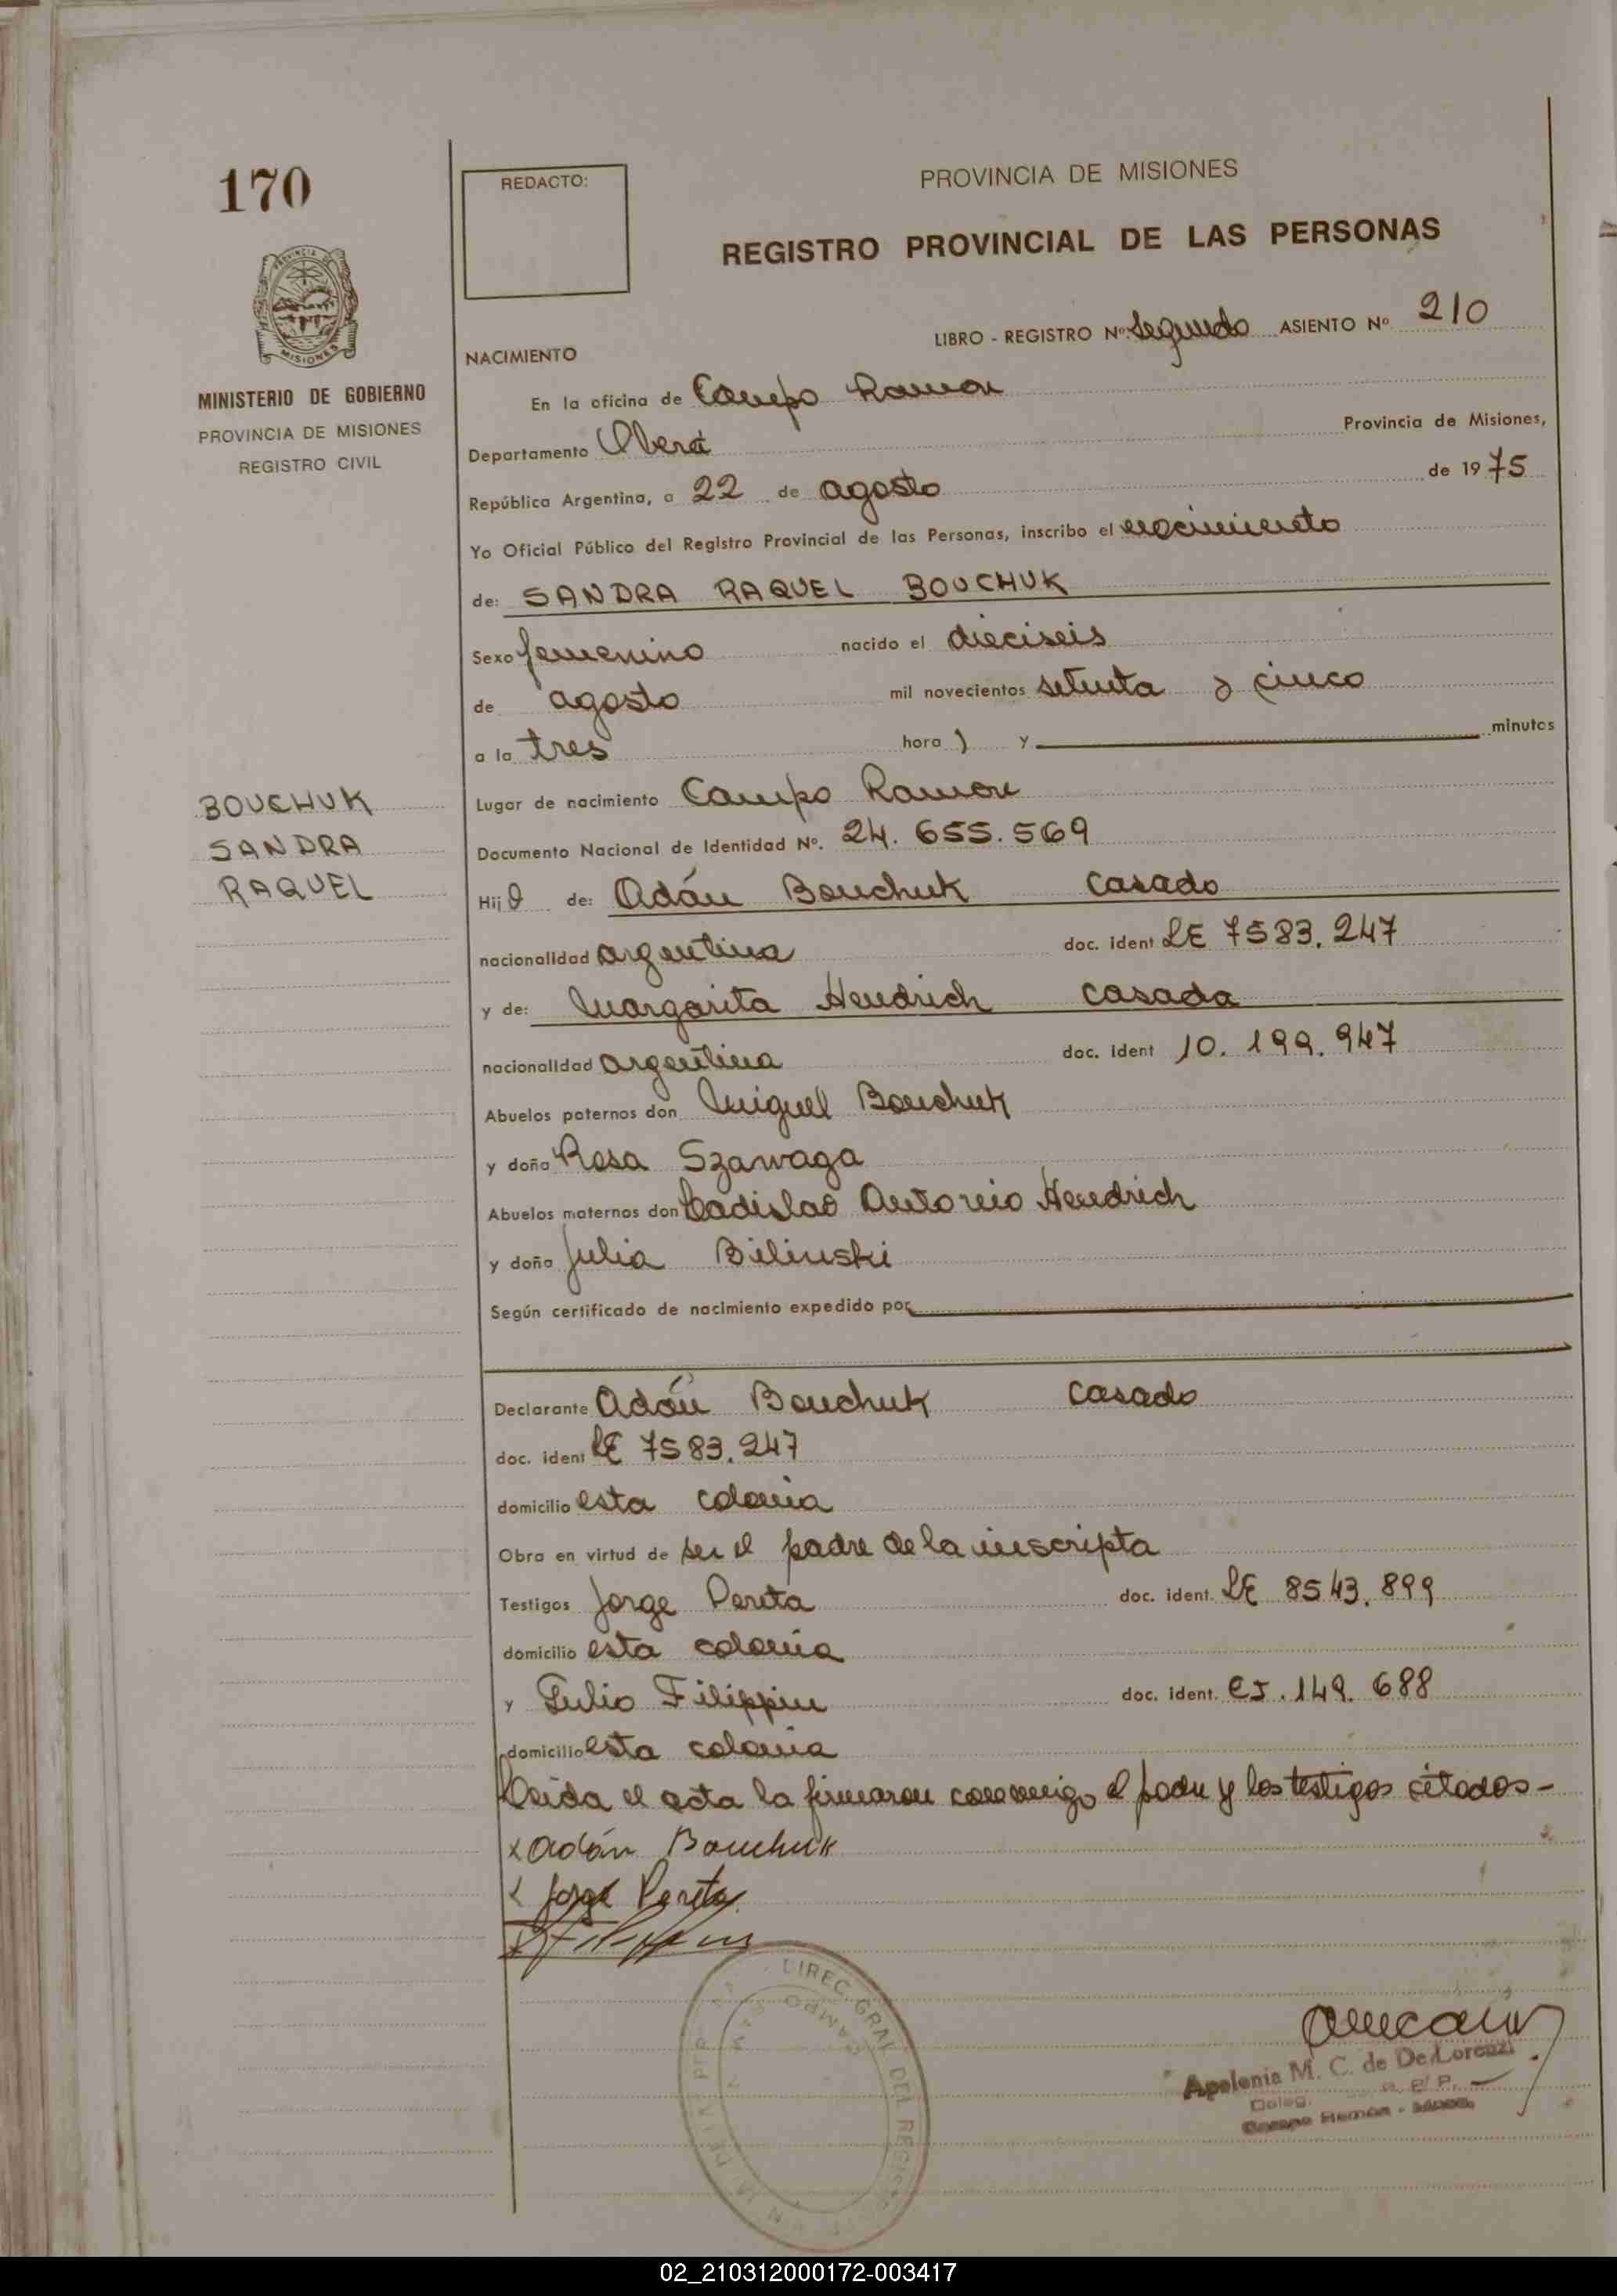 170
REDACTO:
PROVINCIA DE MISIONES
REGISTRO PROVINCIAL DE LAS PERSONAS
LIBRO - REGISTRO Nº Segundo ASIENTO Nº 210
MISIONES
MINISTERIO DE GOBIERNO
PROVINCIA DE MISIONES
REGISTRO CIVIL
NACIMIENTO
En la oficina de Campo Ramon
Departamento Oberá Provincia de Misiones,
República Argentina, a 22 de agosto de 1975
Yo Oficial Público del Registro Provincial de las Personas, inscribo el nacimiento
de: SANDRA RAQUEL BOUCHUK
Sexo femenino nacido el dieciseis
de agosto mil novecientos setenta y cinco
a la tres hora ) y minutos
Lugar de nacimiento Campo Ramon
BOUCHUK
SANDRA
RAQUEL
Documento Nacional de Identidad Nº. 24.655.569
Hij a de: Adán Bouchuk casado
nacionalidad argentina doc. ident LE 7583.247
y de: Margarita Hendrich casada
nacionalidad argentina doc. ident 10.199.947
Abuelos paternos don Miguel Bouchuk
y doña Rosa Szawaga
Abuelos maternos don Ladislao Antonio Hendrich
y doña Julia Bilinski
Según certificado de nacimiento expedido por
Declarante Adán Bouchuk casado
doc. ident LE 7583.247
domicilio esta colonia
Obra en virtud de ser el padre de la inscripta
Testigos Jorge Pereta doc. ident. LE 8543.899
domicilio esta colonia
y Tulio Filippin doc. ident. CI.149.688
domicilio esta colonia
Leida el acta la firmaron conmigo el padre y los testigos citados-
x Adán Bouchuk
x Jorge Pereta
DIREC. GRAL DEL REGIST
CAMPO
Apolonia M. C. de De Lorenzi
Deleg. R. P. P.
Campo Ramón - Mnes.
02_210312000172-003417